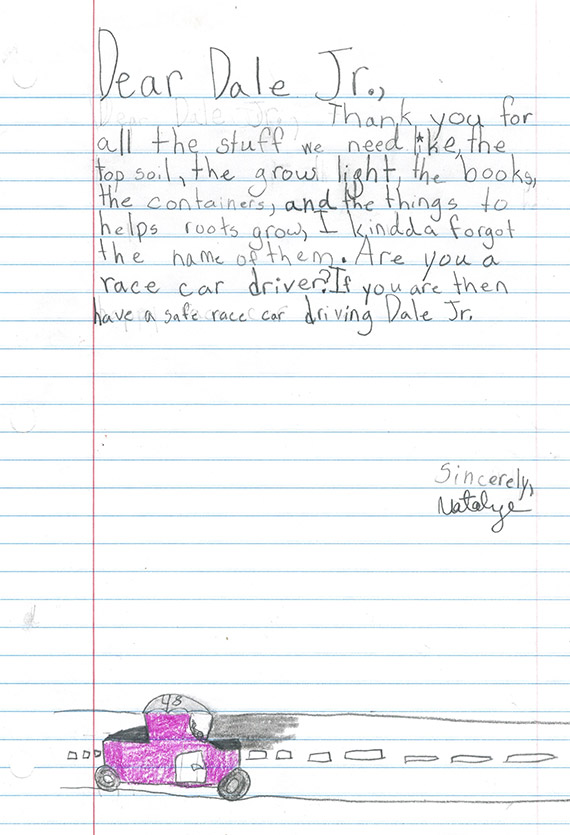 Dear Dale Jr.,
Thank you for
all the stuff we need like, the
top soil, the grow light, the books,
the containers, and the things to
helps roots grow, I kindda forgot
the name of them. Are you a
race car driver? If you are then
have a safe race car driving Dale Jr.
Sincerely,
Natalye
48